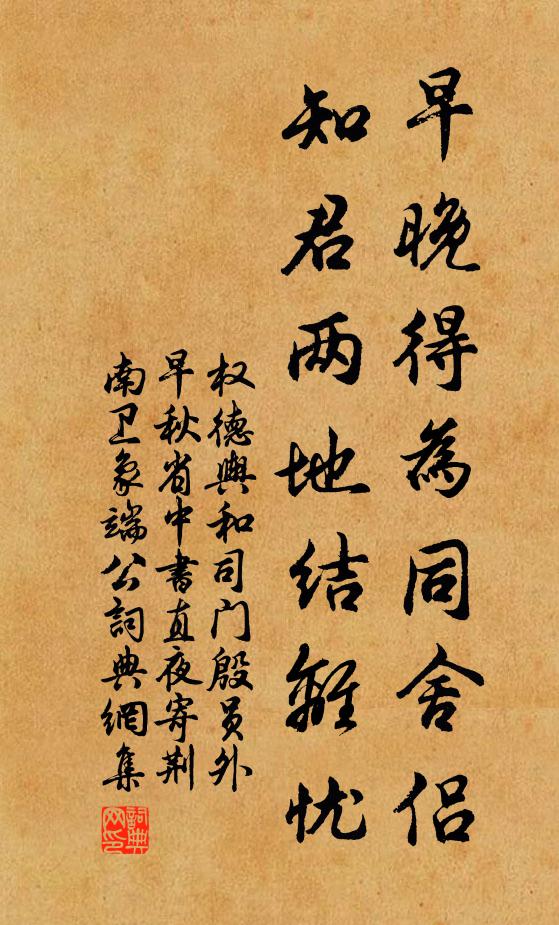 早晚得為同舍侣
知君两地结離忧
权德輿和司门殷员外
早秋省中書直夜寄荆
南卫象端公詞典網集
詞典网印